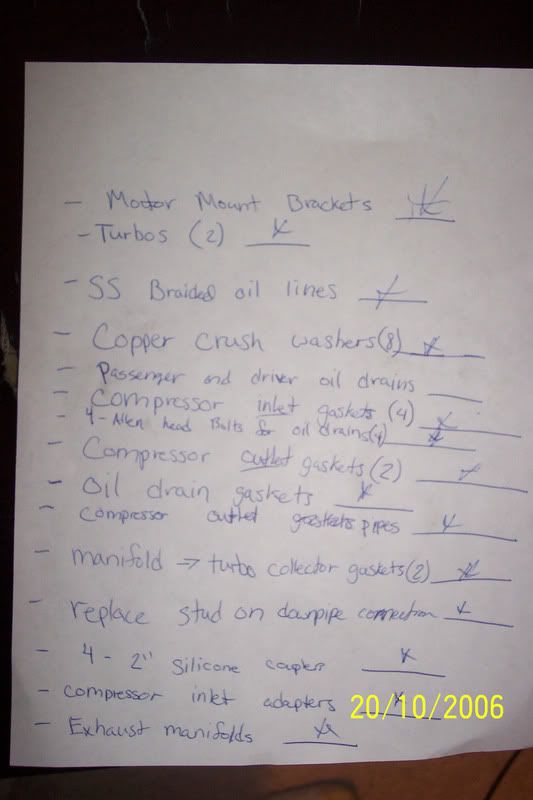 - Motor Mount Brackets x
- Turbos (2) x
- SS Braided oil lines x
- Copper crush washers(8) x
- Passenger and driver oil drains
- Compressor inlet gaskets (4) x
- 4-Allen head Bolts for oil drains(4) x
- Compressor outlet gaskets (2) x
- Oil drain gaskets x
- compressor outlet pipes x
- manifold → turbo collector gaskets(2) x
- replace stud on downpipe connection x
- 4 - 2" silicone couplers x
- compressor inlet adapters x
- Exhaust manifolds x
20/10/2006